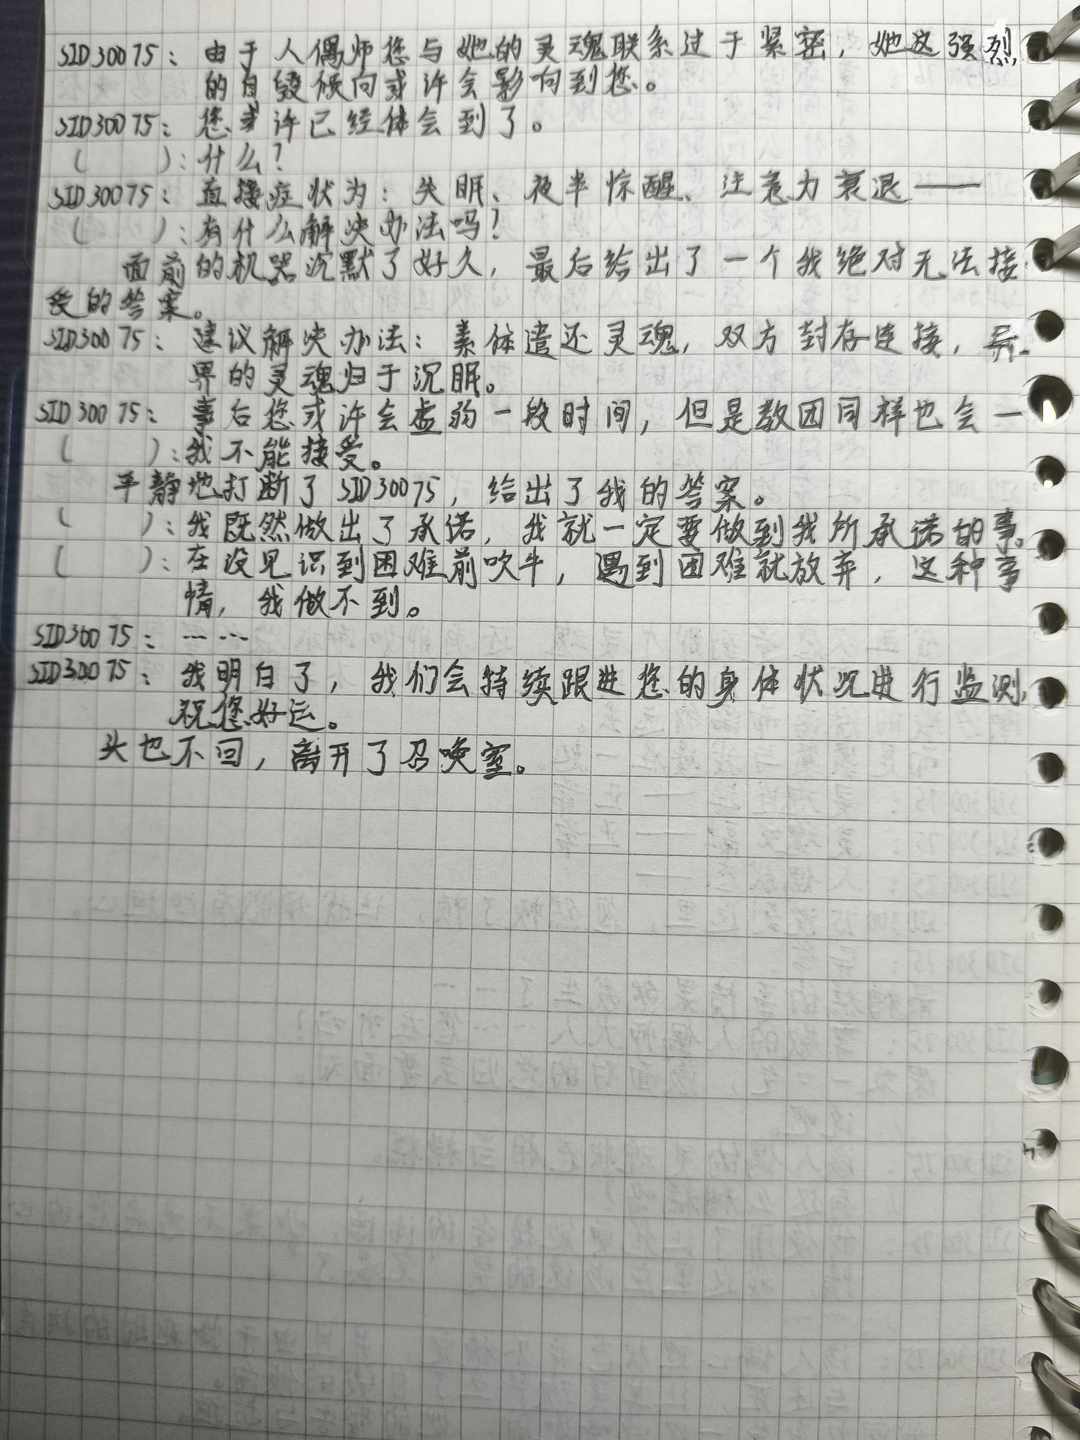 SID30075：由于人偶师您与她的灵魂联系过于紧密，她这强烈
的自毁倾向或许会影响到您。
SID30075：您或许已经体会到了。
（　　）：什么？
SID30075：直接症状为：失眠、夜半惊醒、注意力衰退——
（　　）：有什么解决办法吗？
面前的机器沉默了好久，最后给出了一个我绝对无法接
受的答案。
SID30075：建议解决办法：素体遣还灵魂，双方封存连接，异
界的灵魂归于沉眠。
SID30075：事后您或许会虚弱一段时间，但是教团同样也会一
（　　）：我不能接受。
平静地打断了SID30075，给出了我的答案。
（　　）：我既然做出了承诺，我就一定要做到我所承诺的事。
（　　）：在没见识到困难前吹牛，遇到困难就放弃，这种事
情，我做不到。
SID30075：……
SID30075：我明白了，我们会持续跟进您的身体状况进行监测，
祝您好运。
头也不回，离开了召唤室。